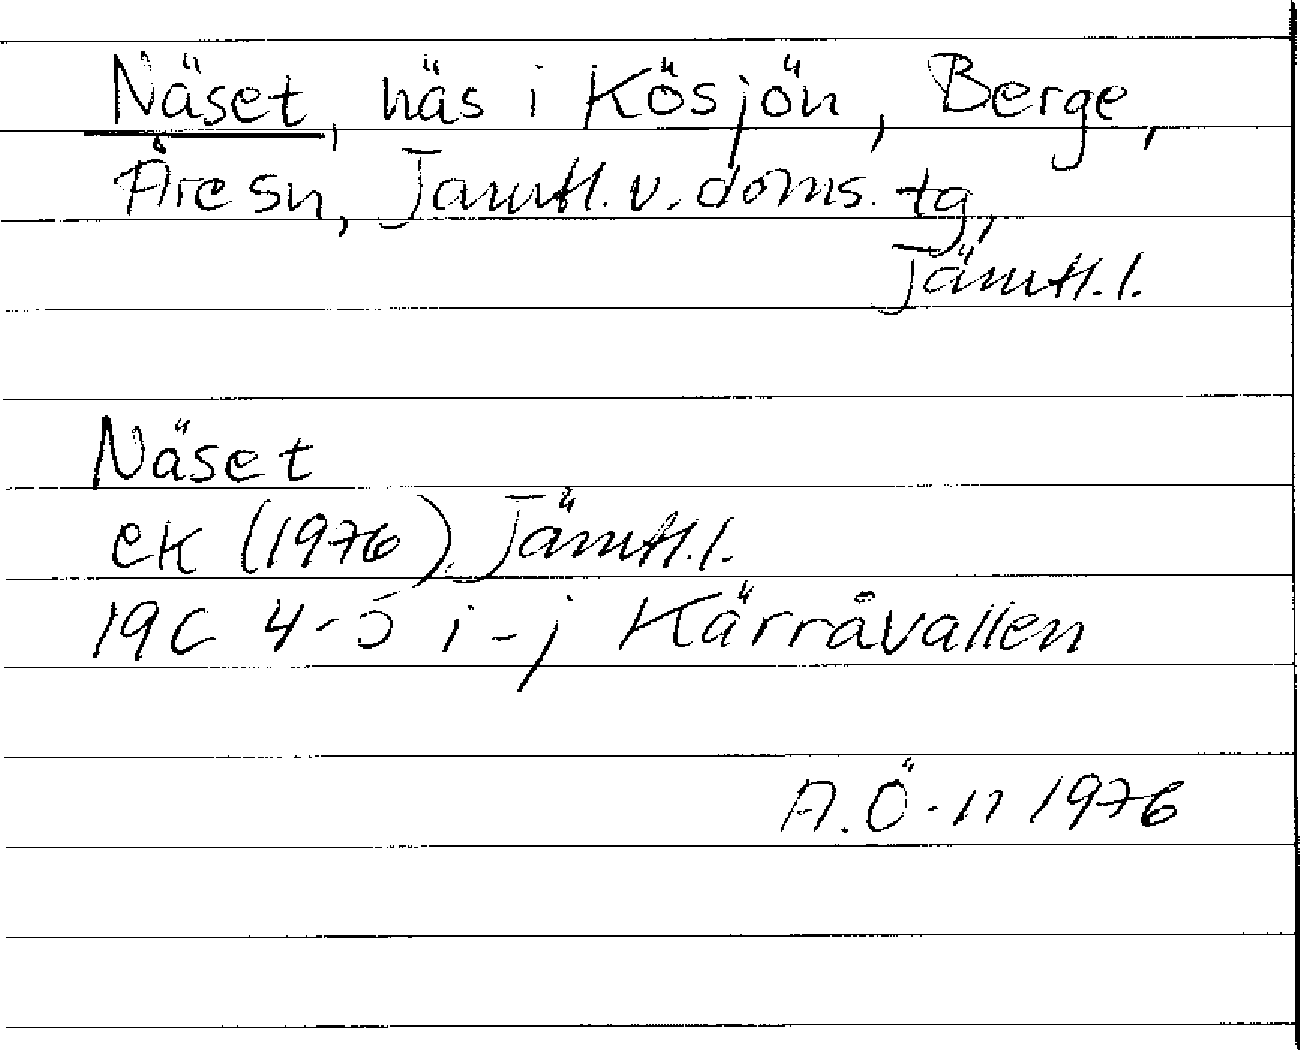 Näset, näs i Kösjön, Berge,
Åre sn, Jämtl. v. doms. tg,
Jämtl. l.
Näset
ek (1976) Jämtl. l.
19C 4-5 i-j Kärråvallen
A. Ö-n 1976